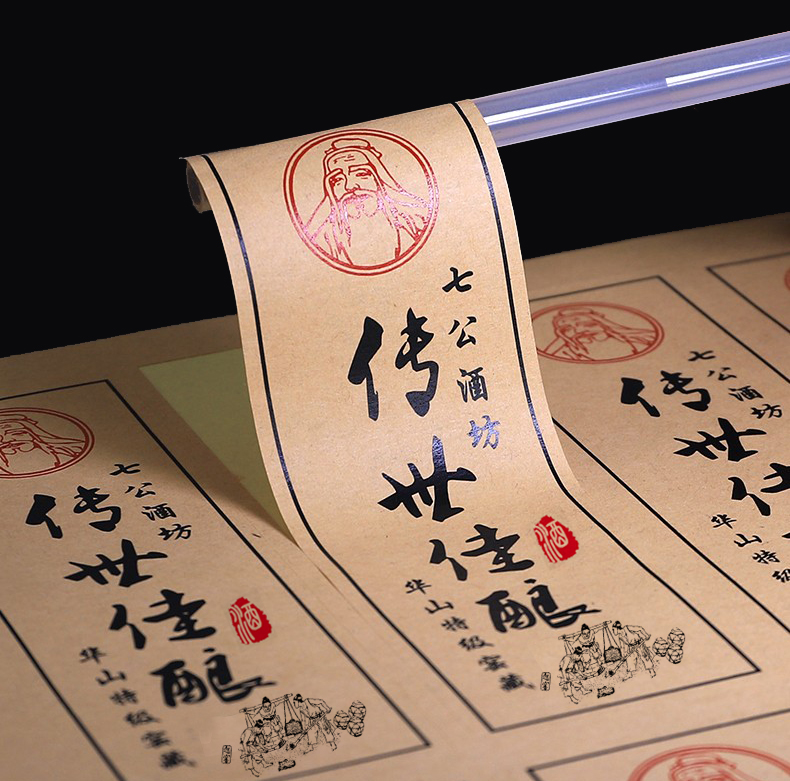 七公酒坊
传世佳酿
酒
华山特级窖藏
七公酒坊
传世佳酿
酒
华山特级窖藏
七公酒坊
传世佳
华山特级